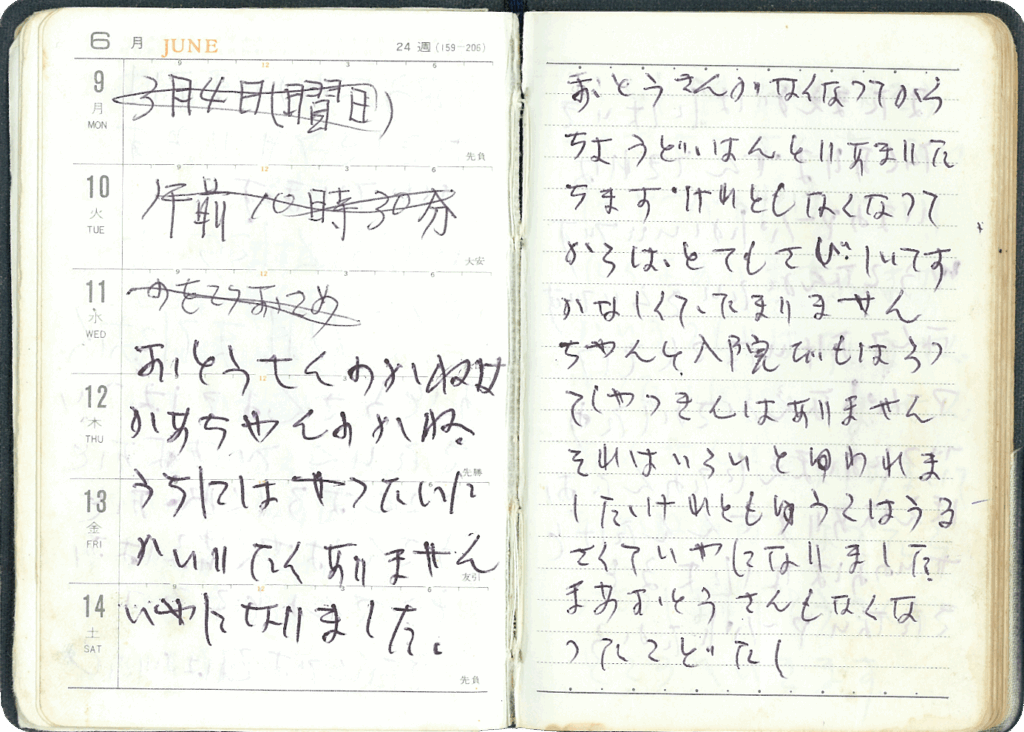 6 月 JUNE
24 週 (159-206)
9 月 MON
3月4日(日曜日)
先負
10 火 TUE
午前 10時30分
大安
11 水 WED
おとうさんのかねは
12 木 THU
かあちゃんのかね。
先勝
うちにはやつたいに
13 金 FRI
かいりたくありません
友引
14 土 SAT
いやになりました。
先負
おとうさんがなくなつてから
ちようどはんとりありした
ちますけれともなくなつて
からはとてもさびしいてす
かなしくてたまりません
ちやんと入院ひもはらつ
てしやつきんはありません
それはいろいとゆわれま
したけれともゆうことはうる
さくていやになりました。
まあおとうさんもなくな
つたことだし